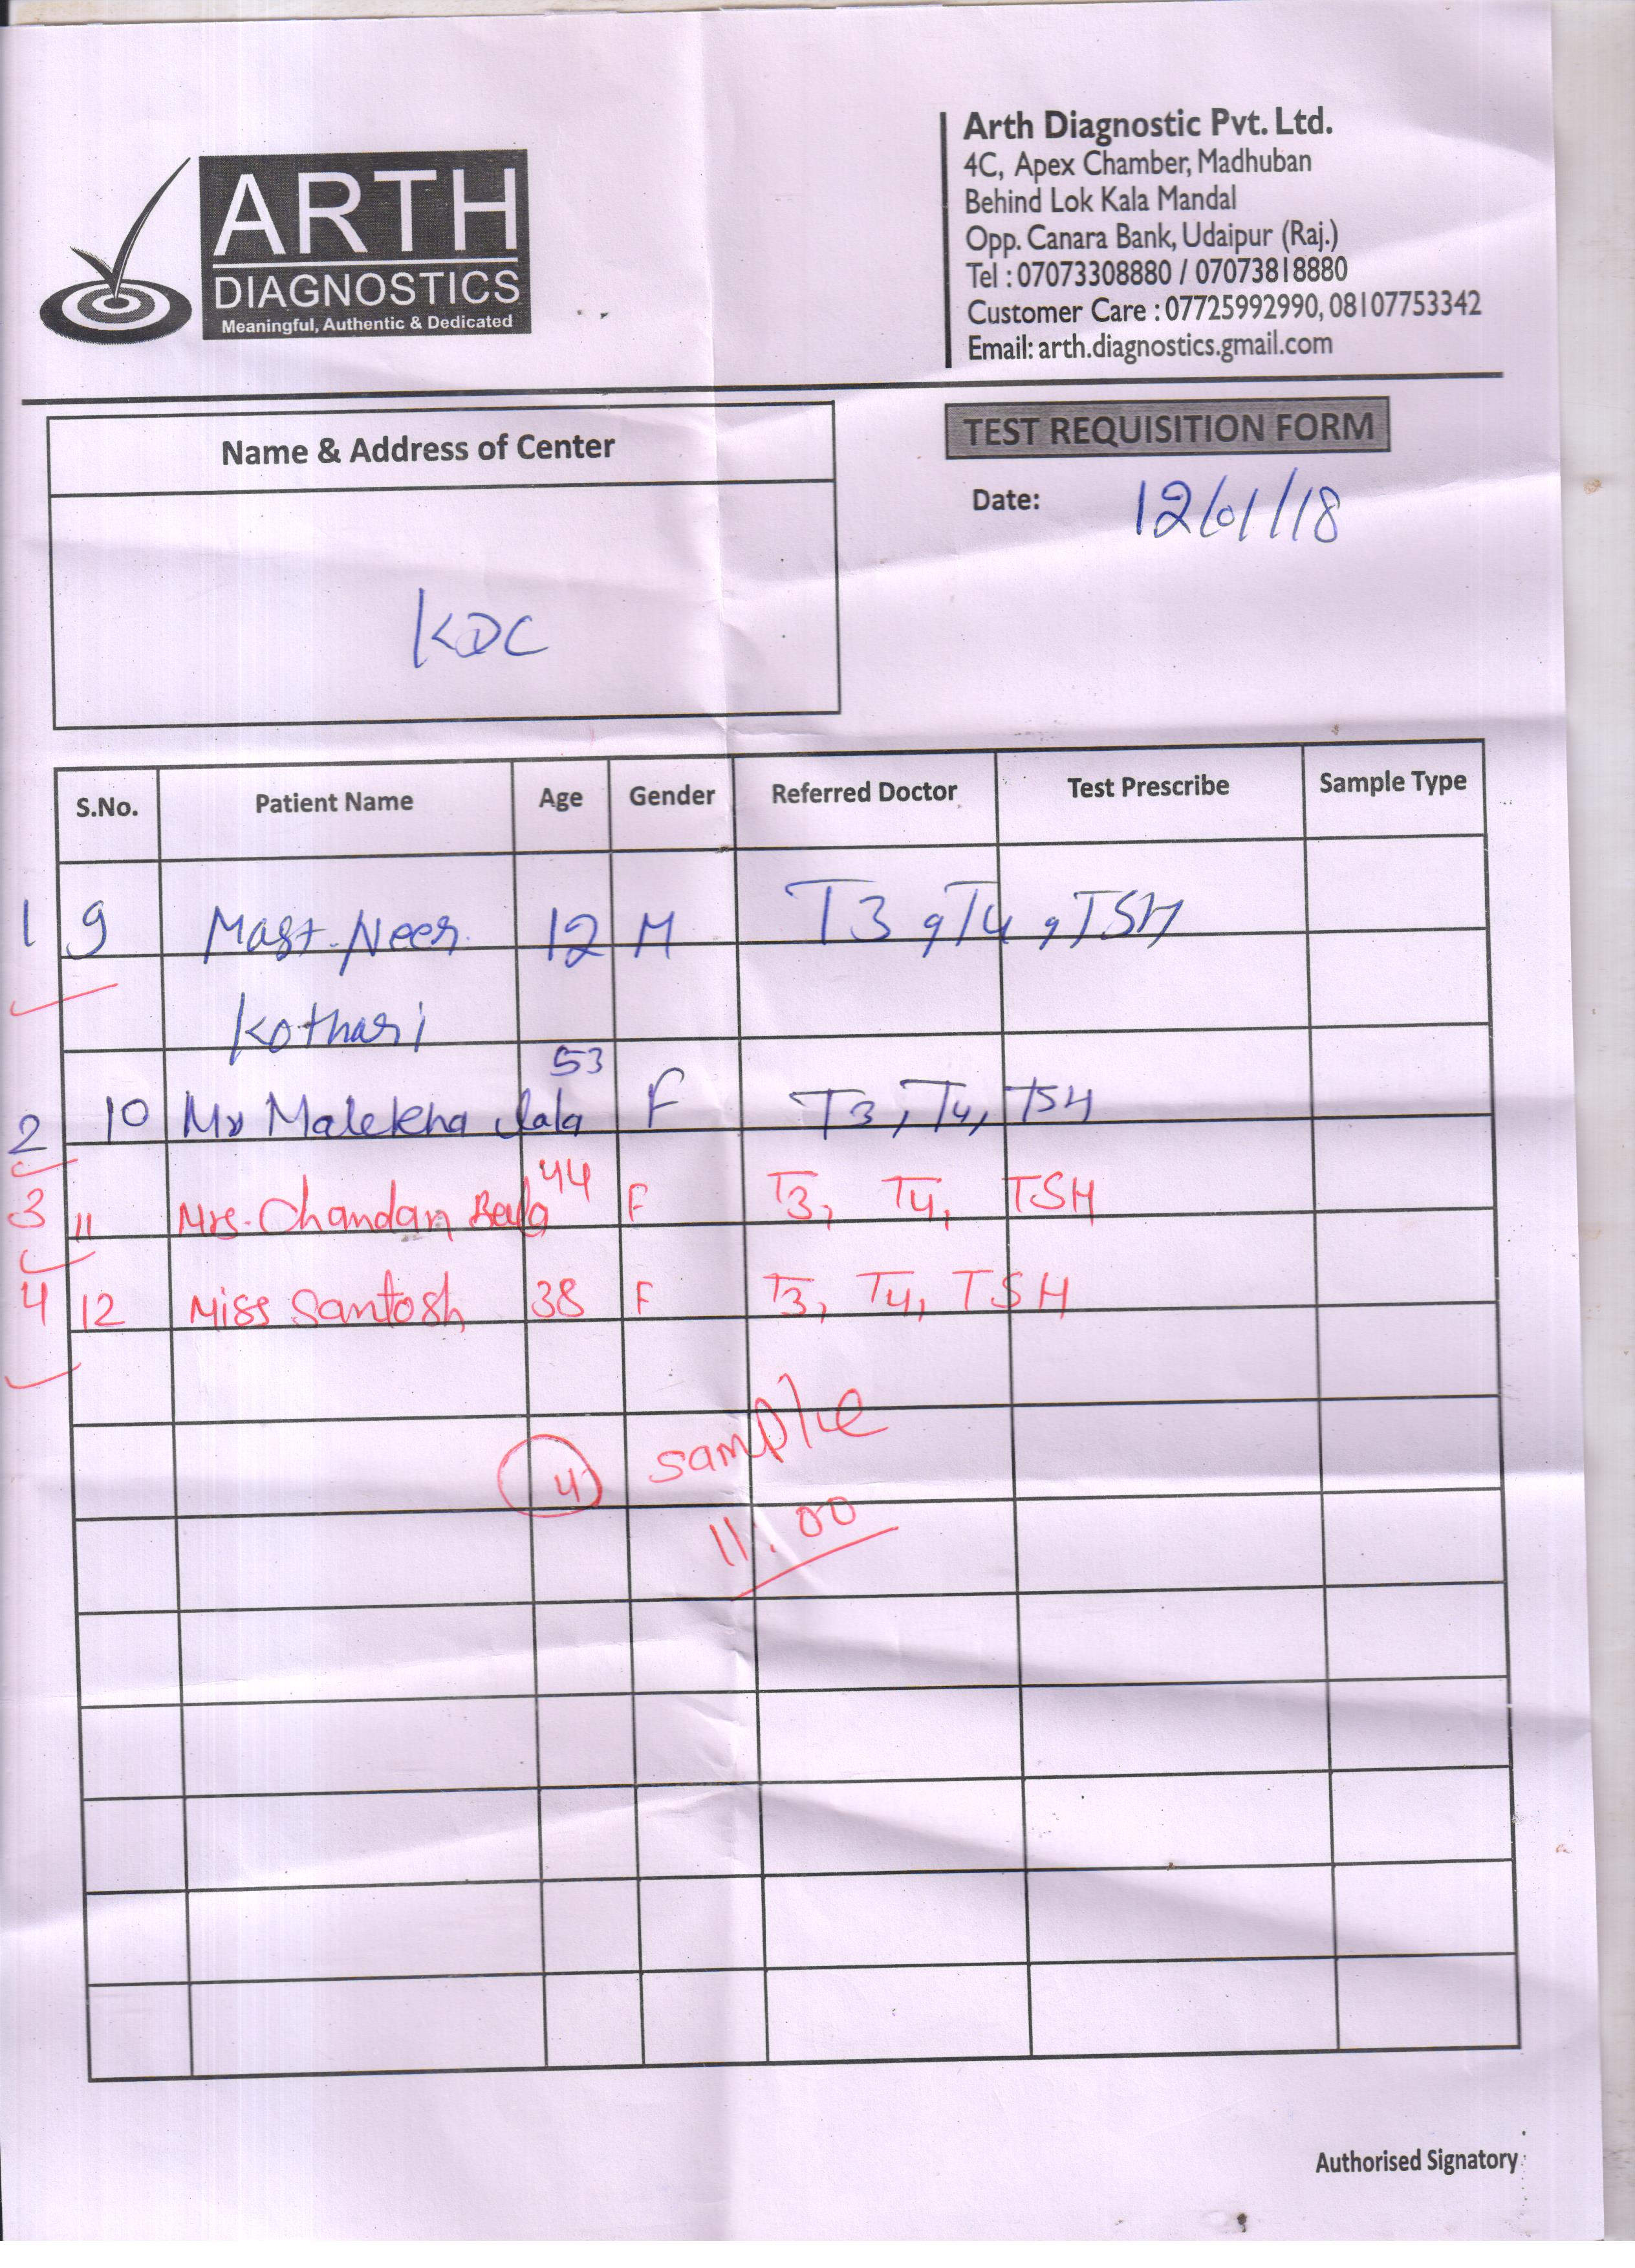 ARTH
DIAGNOSTICS
Meaningful, Authentic & Dedicated
Arth Diagnostic Pvt. Ltd.
4C, Apex Chamber, Madhuban
Behind Lok Kala Mandal
Opp. Canara Bank, Udaipur (Raj.)
Tel : 07073308880 / 07073818880
Customer Care : 07725992990, 08107753342
Email: arth.diagnostics.gmail.com
Name & Address of Center
KDC
TEST REQUISITION FORM
Date: 12/01/18
S.No. Patient Name Age Gender Referred Doctor Test Prescribe Sample Type
1 9 Mast. Neer 12 M T3, T4, TSH
Kothari
53
2 10 Mr Malekha lala F T3, T4, TSH
3 11 Mrs. Chandan Bala 44 F T3, T4, TSH
4 12 Miss Santosh 38 F T3, T4, TSH
4 sample
11:00
Authorised Signatory